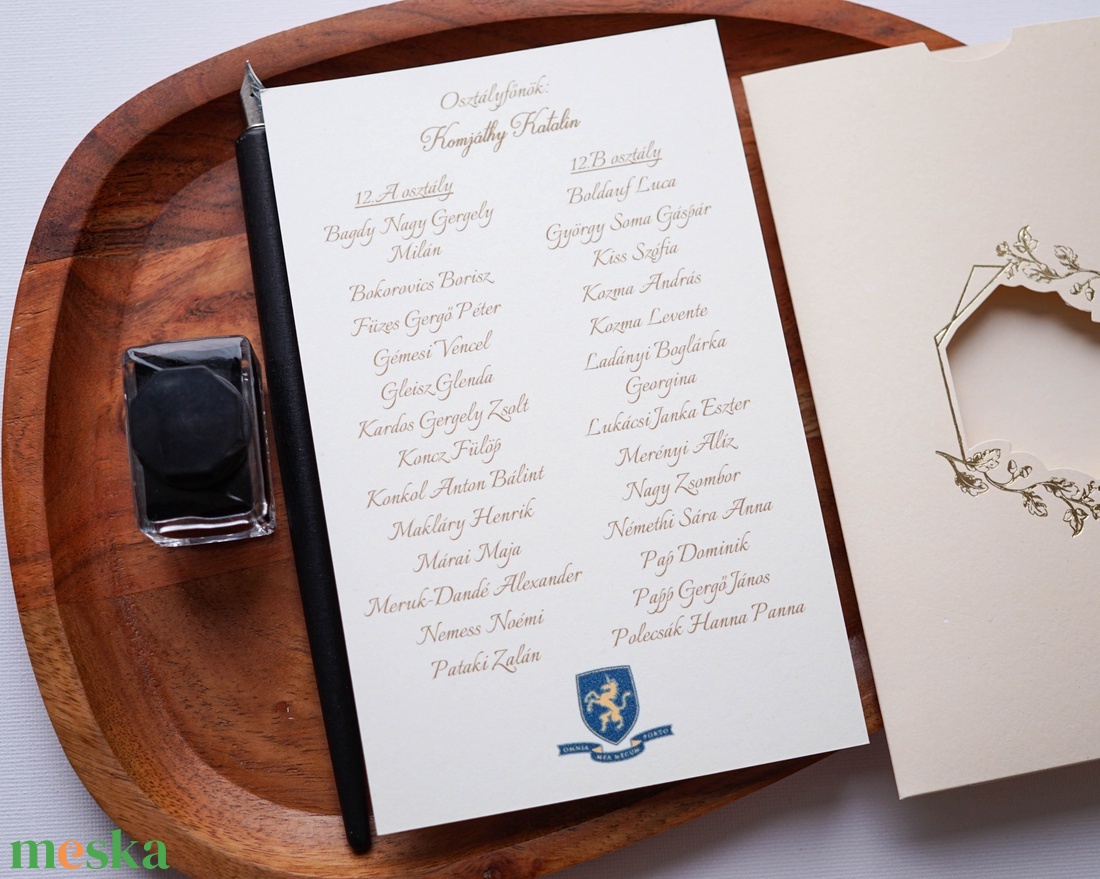 Osztályfőnök:
Komjáthy Katalin
12.A osztály
Bagdy Nagy Gergely
Milán
Bokorovics Borisz
Füzes Gergő Péter
Gémesi Vencel
Gleisz Glenda
Kardos Gergely Zsolt
Koncz Fülöp
Konkol Anton Bálint
Makláry Henrik
Márai Maja
Meruk-Dandé Alexander
Nemess Noémi
Pataki Zalán
12.B osztály
Boldauf Luca
György Soma Gáspár
Kiss Szófia
Kozma András
Kozma Levente
Ladányi Boglárka
Georgina
Lukácsi Janka Eszter
Merényi Alíz
Nagy Zsombor
Némethi Sára Anna
Pap Dominik
Papp Gergő János
Polecsák Hanna Panna
OMNIA MEA MECUM PORTO
meska